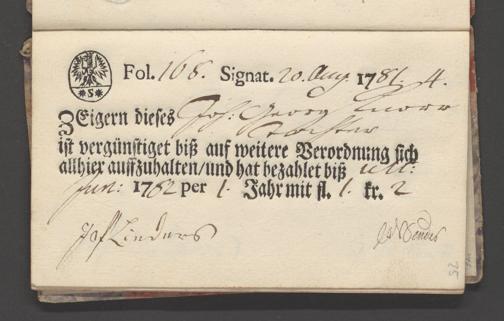 *S*
Fol. 168. Signat. 20. Aug. 1781. 4.
Zeigern dieses Joh: Georg Knorr
Tochter
ist vergünstiget biß auf weitere Verordnung sich
allhier auffzuhalten/und hat bezahlet biß ult:
Jun: 1782 per 1. Jahr mit fl. 1. kr. 2